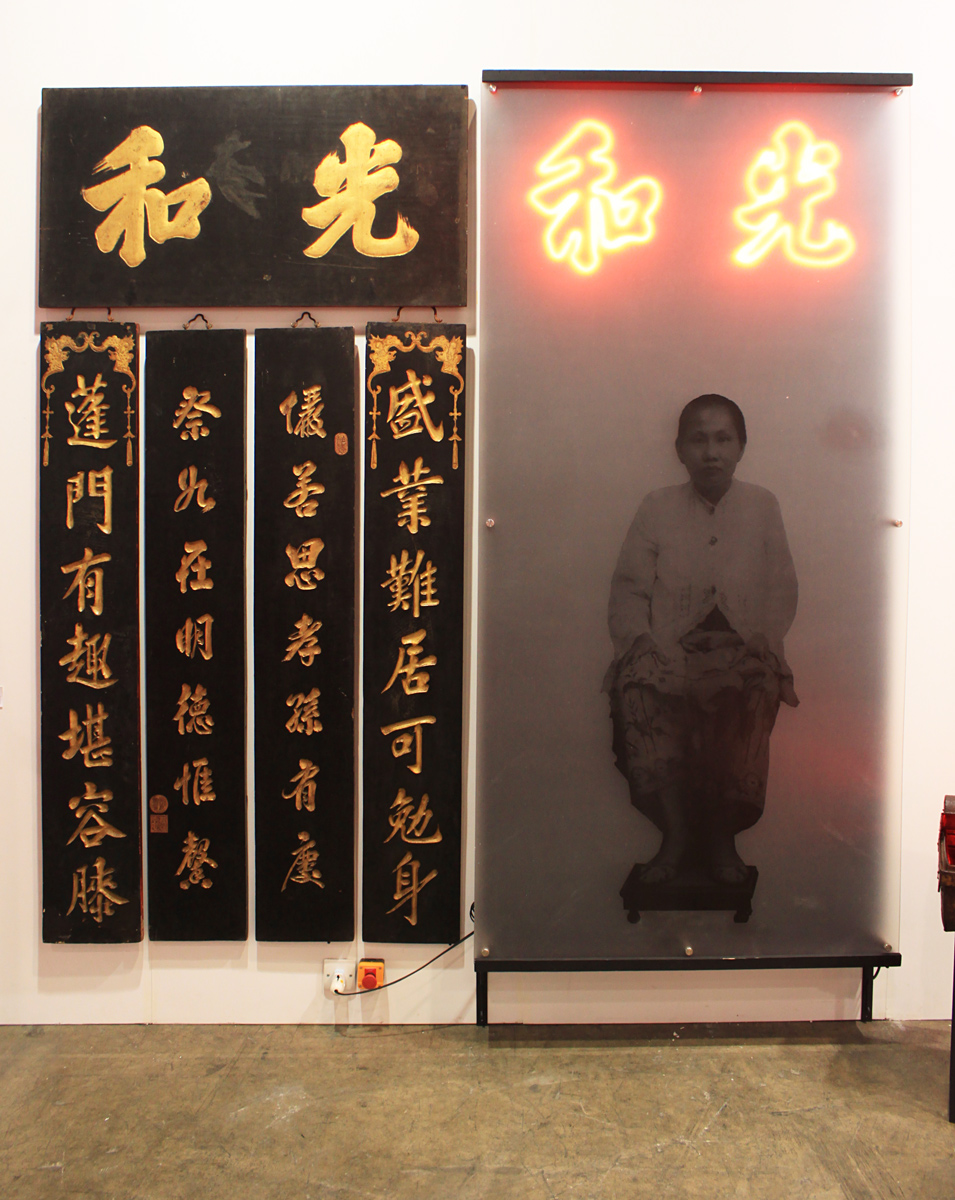 光和
盛業難居可勉身
儼若思孝孫有慶
祭如在明德惟馨
蓬門有趣堪容膝
光和